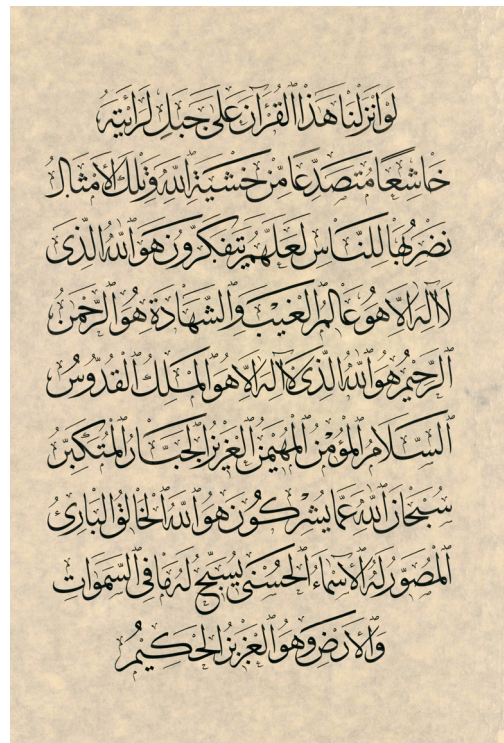 لَوْ أَنْزَلْنَا هَذَا الْقُرْآنَ عَلَى جَبَلٍ لَرَأَيْتَهُ
خَاشِعًا مُتَصَدِّعًا مِنْ خَشْيَةِ اللَّهِ وَتِلْكَ الْأَمْثَالُ
نَضْرِبُهَا لِلنَّاسِ لَعَلَّهُمْ يَتَفَكَّرُونَ هُوَ اللَّهُ الَّذِى
لَا إِلَهَ إِلَّا هُوَ عَالِمُ الْغَيْبِ وَالشَّهَادَةِ هُوَ الرَّحْمَنُ
الرَّحِيمُ هُوَ اللَّهُ الَّذِى لَا إِلَهَ إِلَّا هُوَ الْمَلِكُ الْقُدُّوسُ
السَّلَامُ الْمُؤْمِنُ الْمُهَيْمِنُ الْعَزِيزُ الْجَبَّارُ الْمُتَكَبِّرُ
سُبْحَانَ اللَّهِ عَمَّا يُشْرِكُونَ هُوَ اللَّهُ الْخَالِقُ الْبَارِئُ
الْمُصَوِّرُ لَهُ الْأَسْمَاءُ الْحُسْنَى يُسَبِّحُ لَهُ مَا فِى السَّمَوَاتِ
وَالْأَرْضِ وَهُوَ الْعَزِيزُ الْحَكِيمُ